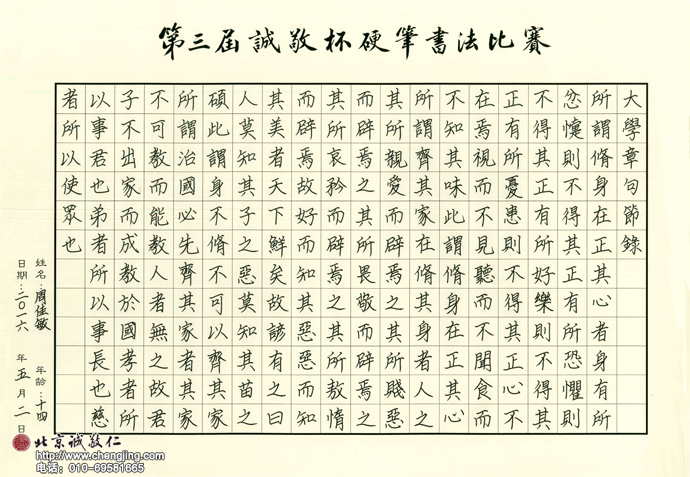 第三屆誠敬杯硬筆書法比賽
大學章句節錄
所謂脩身在正其心者身有所
忿懥則不得其正有所恐懼則
不得其正有所好樂則不得其
正有所憂患則不得其正心不
在焉視而不見聽而不聞食而
不知其味此謂脩身在正其心
所謂齊其家在脩其身者人之
其所親愛而辟焉之其所賤惡
而辟焉之其所畏敬而辟焉之
其所哀矜而辟焉之其所敖惰
而辟焉故好而知其惡惡而知
其美者天下鮮矣故諺有之曰
人莫知其子之惡莫知其苗之
碩此謂身不脩不可以齊其家
所謂治國必先齊其家者其家
不可教而能教人者無之故君
子不出家而成教於國孝者所
以事君也弟者所以事長也慈
者所以使眾也
姓名:周佳敏 年齡:十四
日期:二〇一六年五月二日
北京誠敬仁
http://www.chengjing.com
电话：010-69581665